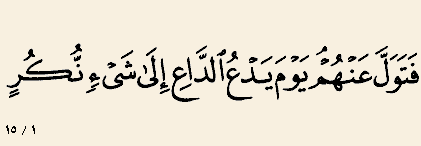 فَتَوَلَّ عَنْهُمْ يَوْمَ يَدْعُ ٱلدَّاعِ إِلَىٰ شَىْءٍ نُّكُرٍ
١ / ١٥